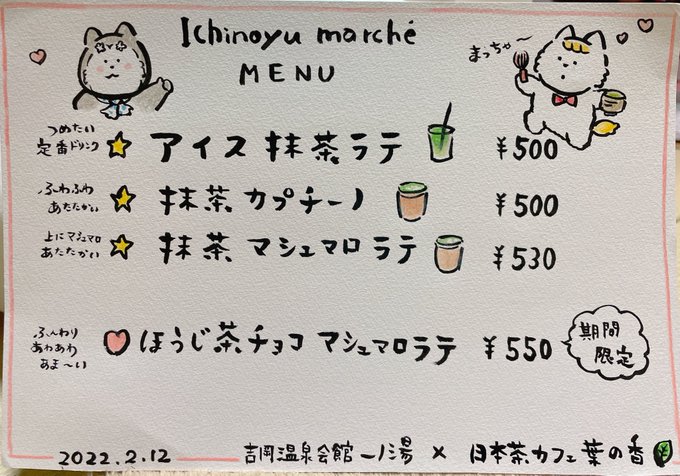 Ichinoyu marché
MENU
まっちゃ〜
つめたい
定番ドリンク
アイス抹茶ラテ ¥500
ふわふわ
あたたかい
抹茶カプチーノ ¥500
上にマシュマロ
あたたかい
抹茶マシュマロラテ ¥530
ふんわり
あわあわ
あま〜い
ほうじ茶チョコマシュマロラテ ¥550
期間
限定
2022.2.12 吉岡温泉会館一ノ湯 × 日本茶カフェ葉の香